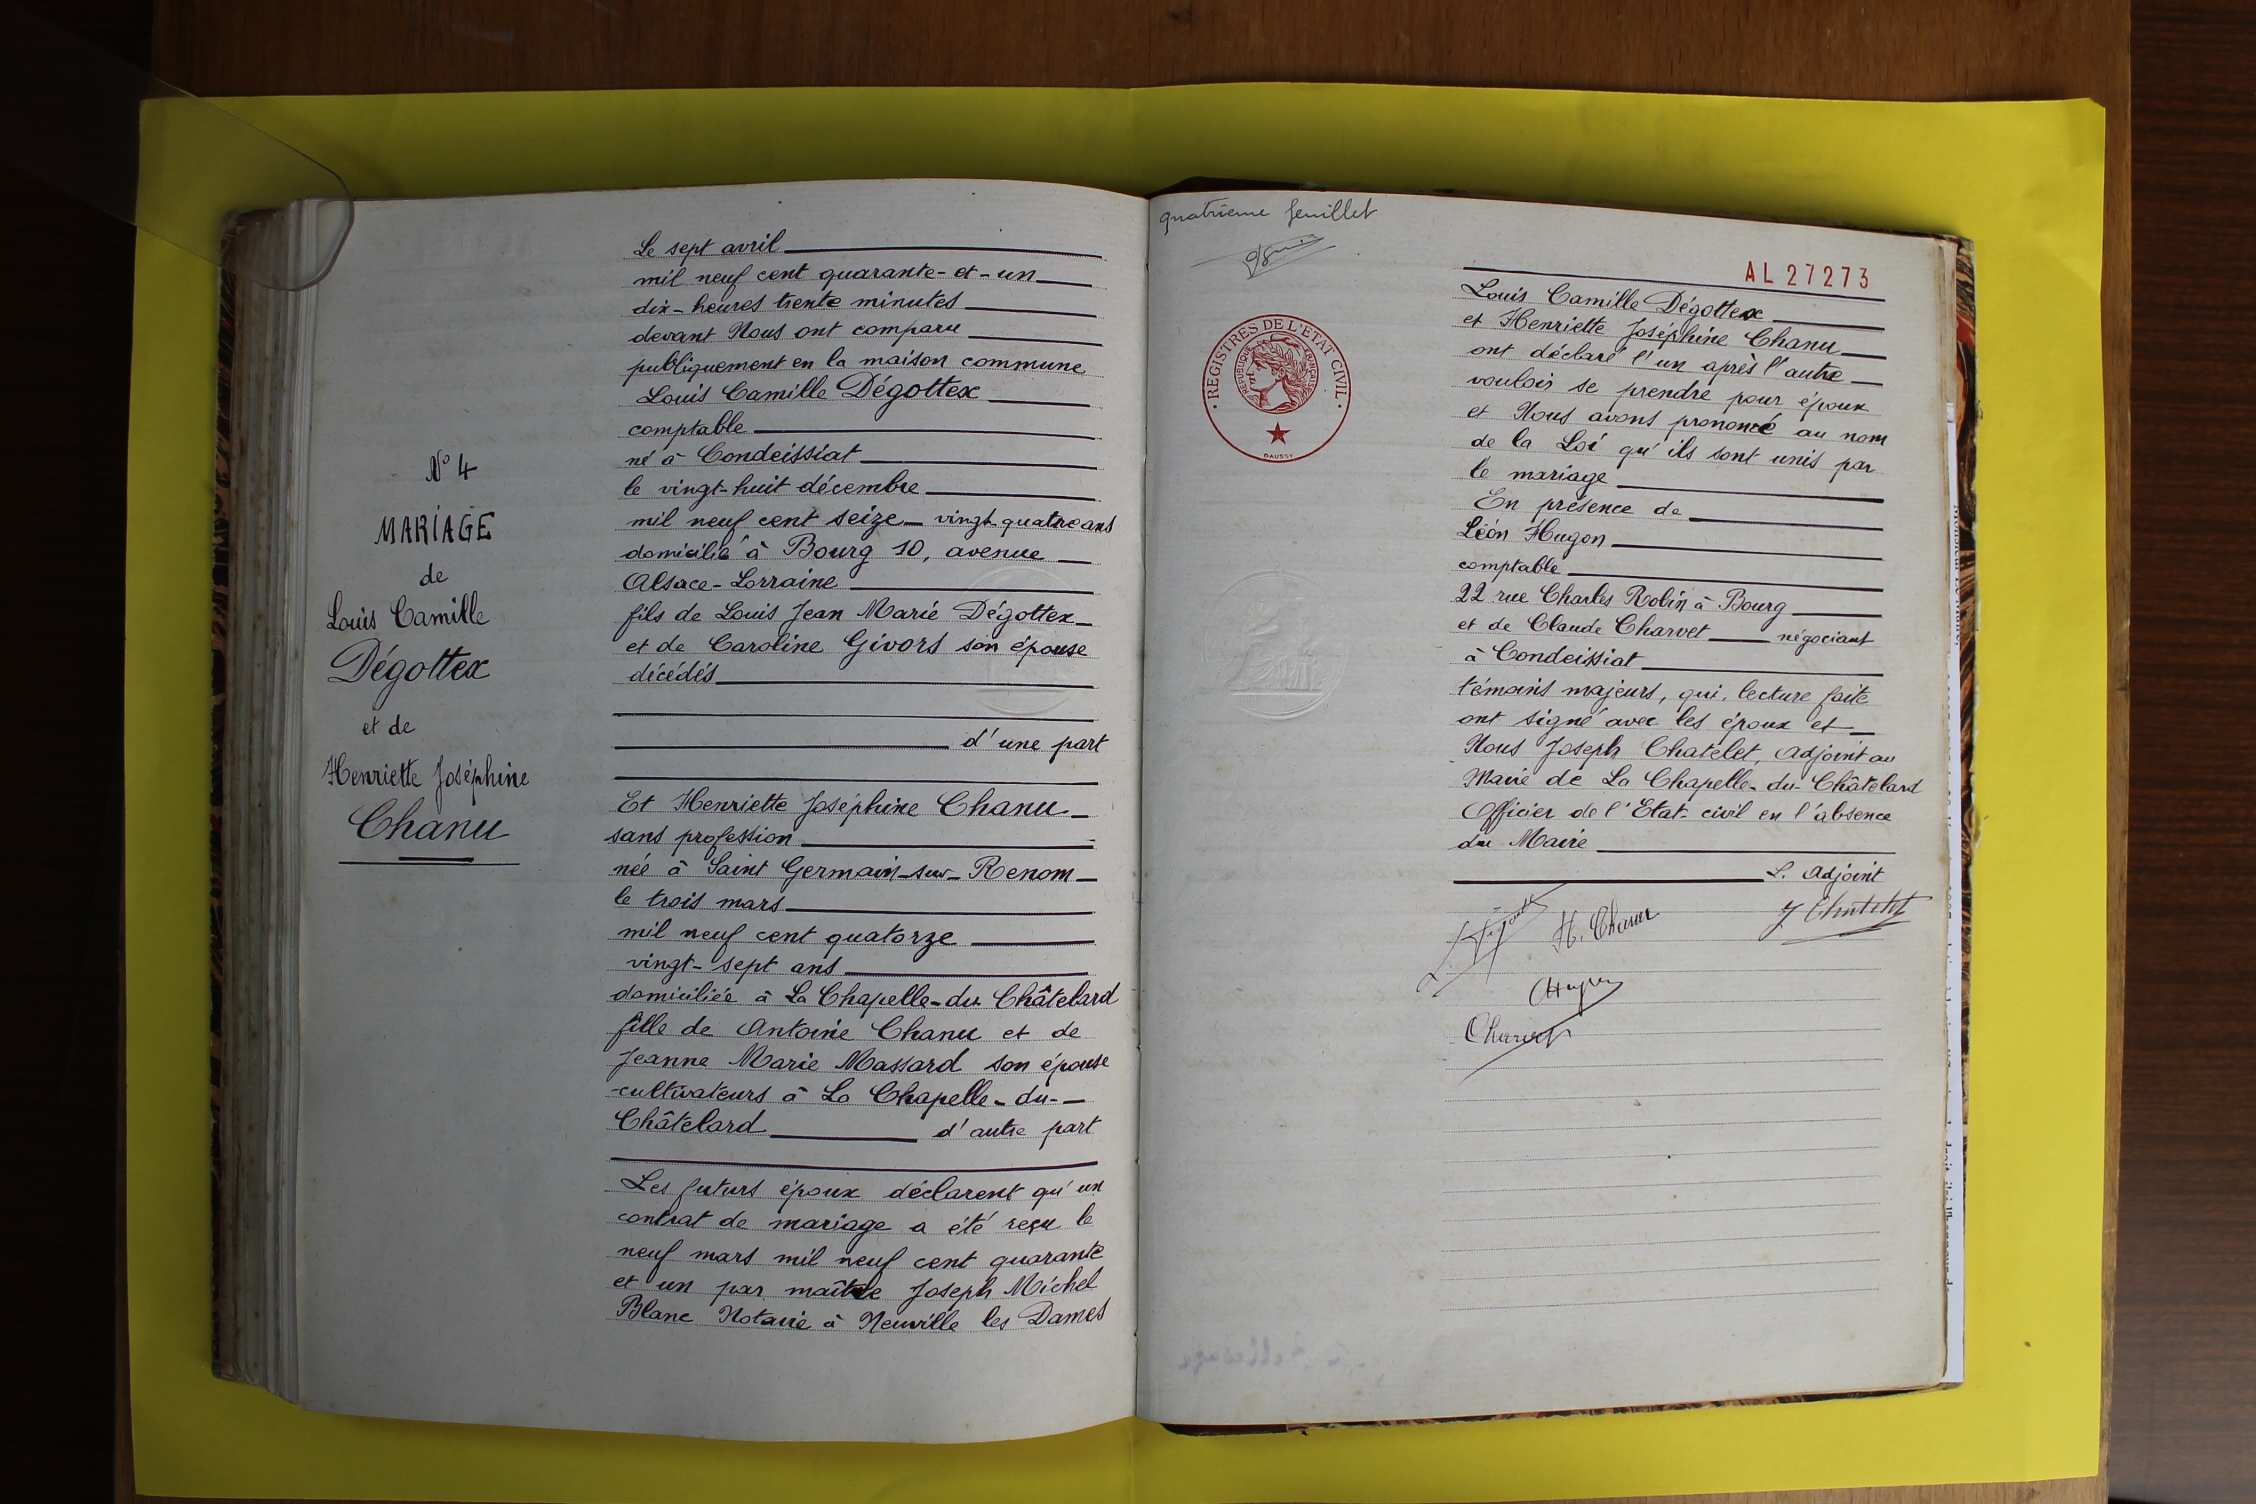 N° 4
MARIAGE
de
Louis Camille
Dégottex
et de
Henriette Joséphine
Chanu
Le sept avril
mil neuf cent quarante-et-un
dix-heures trente minutes
devant Nous ont comparu
publiquement en la maison commune
Louis Camille Dégottex
comptable
né à Condeissiat
le vingt-huit décembre
mil neuf cent seize - vingt quatre ans
domicilié à Bourg 10, avenue
Alsace-Lorraine
fils de Louis Jean Marie Dégottex
et de Caroline Givors son épouse
décédés
d'une part
Et Henriette Joséphine Chanu
sans profession
née à Saint Germain-sur-Renom
le trois mars
mil neuf cent quatorze
vingt-sept ans
domiciliée à La Chapelle-du Châtelard
fille de Antoine Chanu et de
Jeanne Marie Massard son épouse
cultivateurs à La Chapelle-du-
Châtelard d'autre part
Les futurs époux déclarent qu'un
contrat de mariage a été reçu le
neuf mars mil neuf cent quarante
et un par maître Joseph Michel
Blanc Notaire à Neuville les Dames
quatrieme feuillet
REGISTRES DE L'ETAT CIVIL
REPUBLIQUE FRANÇAISE
DAUSSY
AL 27273
Louis Camille Dégottex
et Henriette Joséphine Chanu
ont déclaré l'un après l'autre
vouloir se prendre pour époux
et Nous avons prononcé au nom
de la Loi qu'ils sont unis par
le mariage
En présence de
Léon Hugon
comptable
22 rue Charles Robin à Bourg
et de Claude Charvet négociant
à Condeissiat
témoins majeurs, qui, lecture faite
ont signé avec les époux et
Nous Joseph Chatelet, Adjoint au
Maire de La Chapelle-du-Châtelard
Officier de l'Etat-civil en l'absence
du Maire
L. Adjoint
H. Chanu
J. Chatelet
Hugon
Charvet